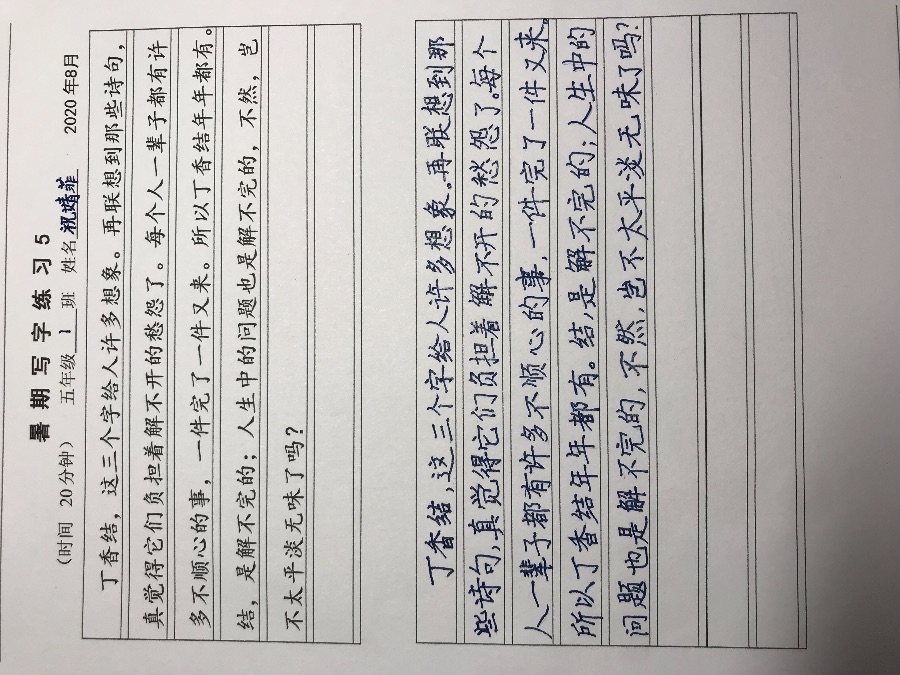 暑期写字练习5
（时间 20分钟） 五年级 1 班 姓名 祝婧菲 2020年8月
丁香结，这三个字给人许多想象。再联想到那些诗句，
真觉得它们负担着解不开的愁怨了。每个人一辈子都有许
多不顺心的事，一件完了一件又来。所以丁香结年年都有。
结，是解不完的；人生中的问题也是解不完的，不然，岂
不太平淡无味了吗？
丁香结，这三个字给人许多想象。再联想到那
些诗句，真觉得它们负担着解不开的愁怨了。每个
人一辈子都有许多不顺心的事，一件完了一件又来。
所以丁香结年年都有。结，是解不完的；人生中的
问题也是解不完的，不然，岂不太平淡无味了吗？